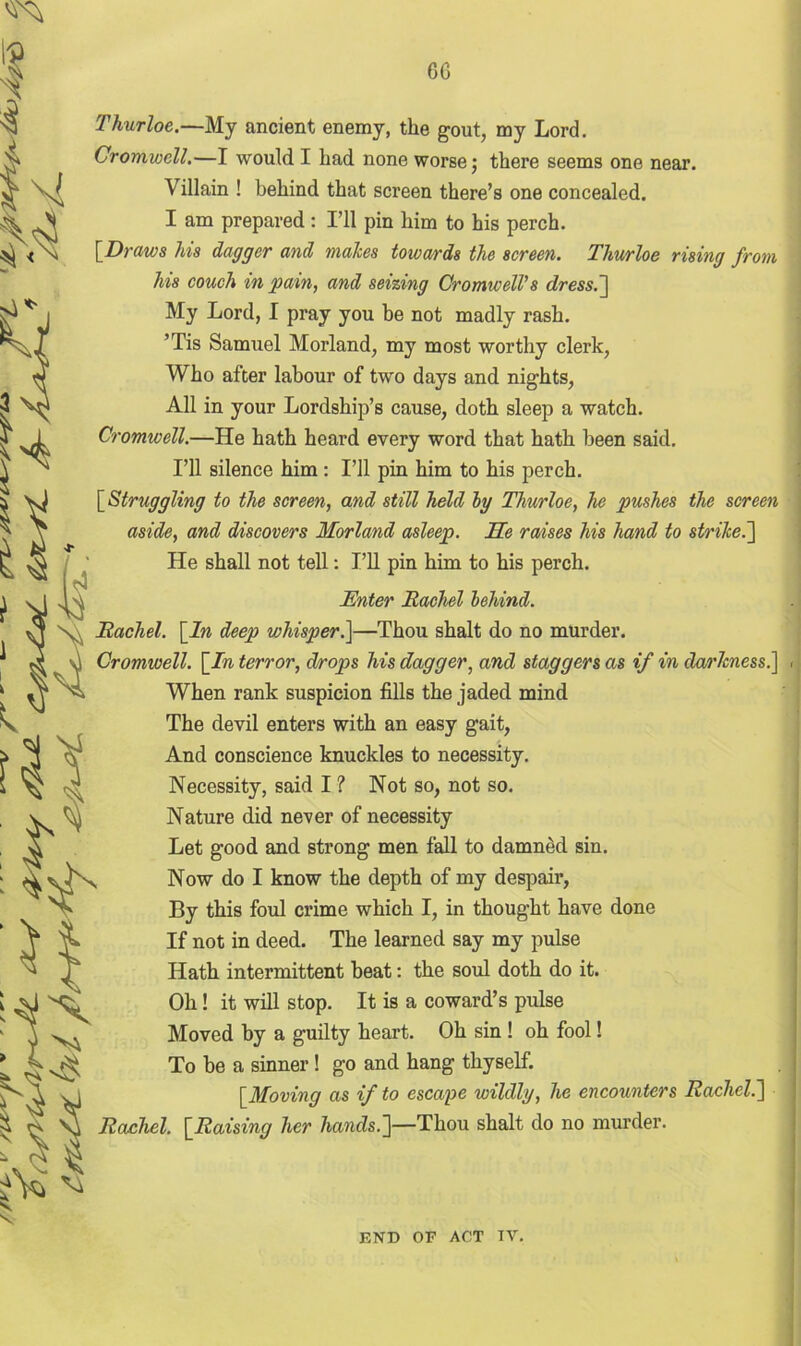 66
Thurloe.—My ancient enemy, the gout, my Lord.
Cromwell.—I would I had none worse; there seems one near.
Villain ! behind that screen there's one concealed.
I am prepared : I'll pin him to his perch.
[Draws his dagger and makes towards the screen. Thurloe rising from
his couch in pain, and seizing Cromwell's dress.]
My Lord, I pray you be not madly rash.
'Tis Samuel Morland, my most worthy clerk,
Who after labour of two days and nights,
All in your Lordship's cause, doth sleep a watch.
Cromwell.—He hath heard every word that hath been said.
I'll silence him : I'll pin him to his perch.
[Struggling to the screen, and still held by Thurloe, he pushes the screen
aside, and discovers Morland asleep. He raises his hand to strike.]
He shall not tell : I'll pin him to his perch.
Enter Rachel behind.
Rachel. [In deep whisper.]—Thou shalt do no murder.
Cromwell. [In terror, drops his dagger, and staggers as if in darkness.]
When rank suspicion fills the jaded mind
The devil enters with an easy gait,
And conscience knuckles to necessity.
Necessity, said I ? Not so, not so.
Nature did never of necessity
Let good and strong men fall to damnèd sin.
Now do I know the depth of my despair,
By this foul crime which I, in thought have done
If not in deed. The learned say my pulse
Hath intermittent beat : the soul doth do it.
Oh ! it will stop. It is a coward's pulse
Moved by a guilty heart. Oh sin ! oh fool !
To be a sinner ! go and hang thyself.
[Moving as if to escape wildly, he encounters Rachel.]
Rachel. [Raising her hands.]—Thou shalt do no murder.
END OF ACT IV.